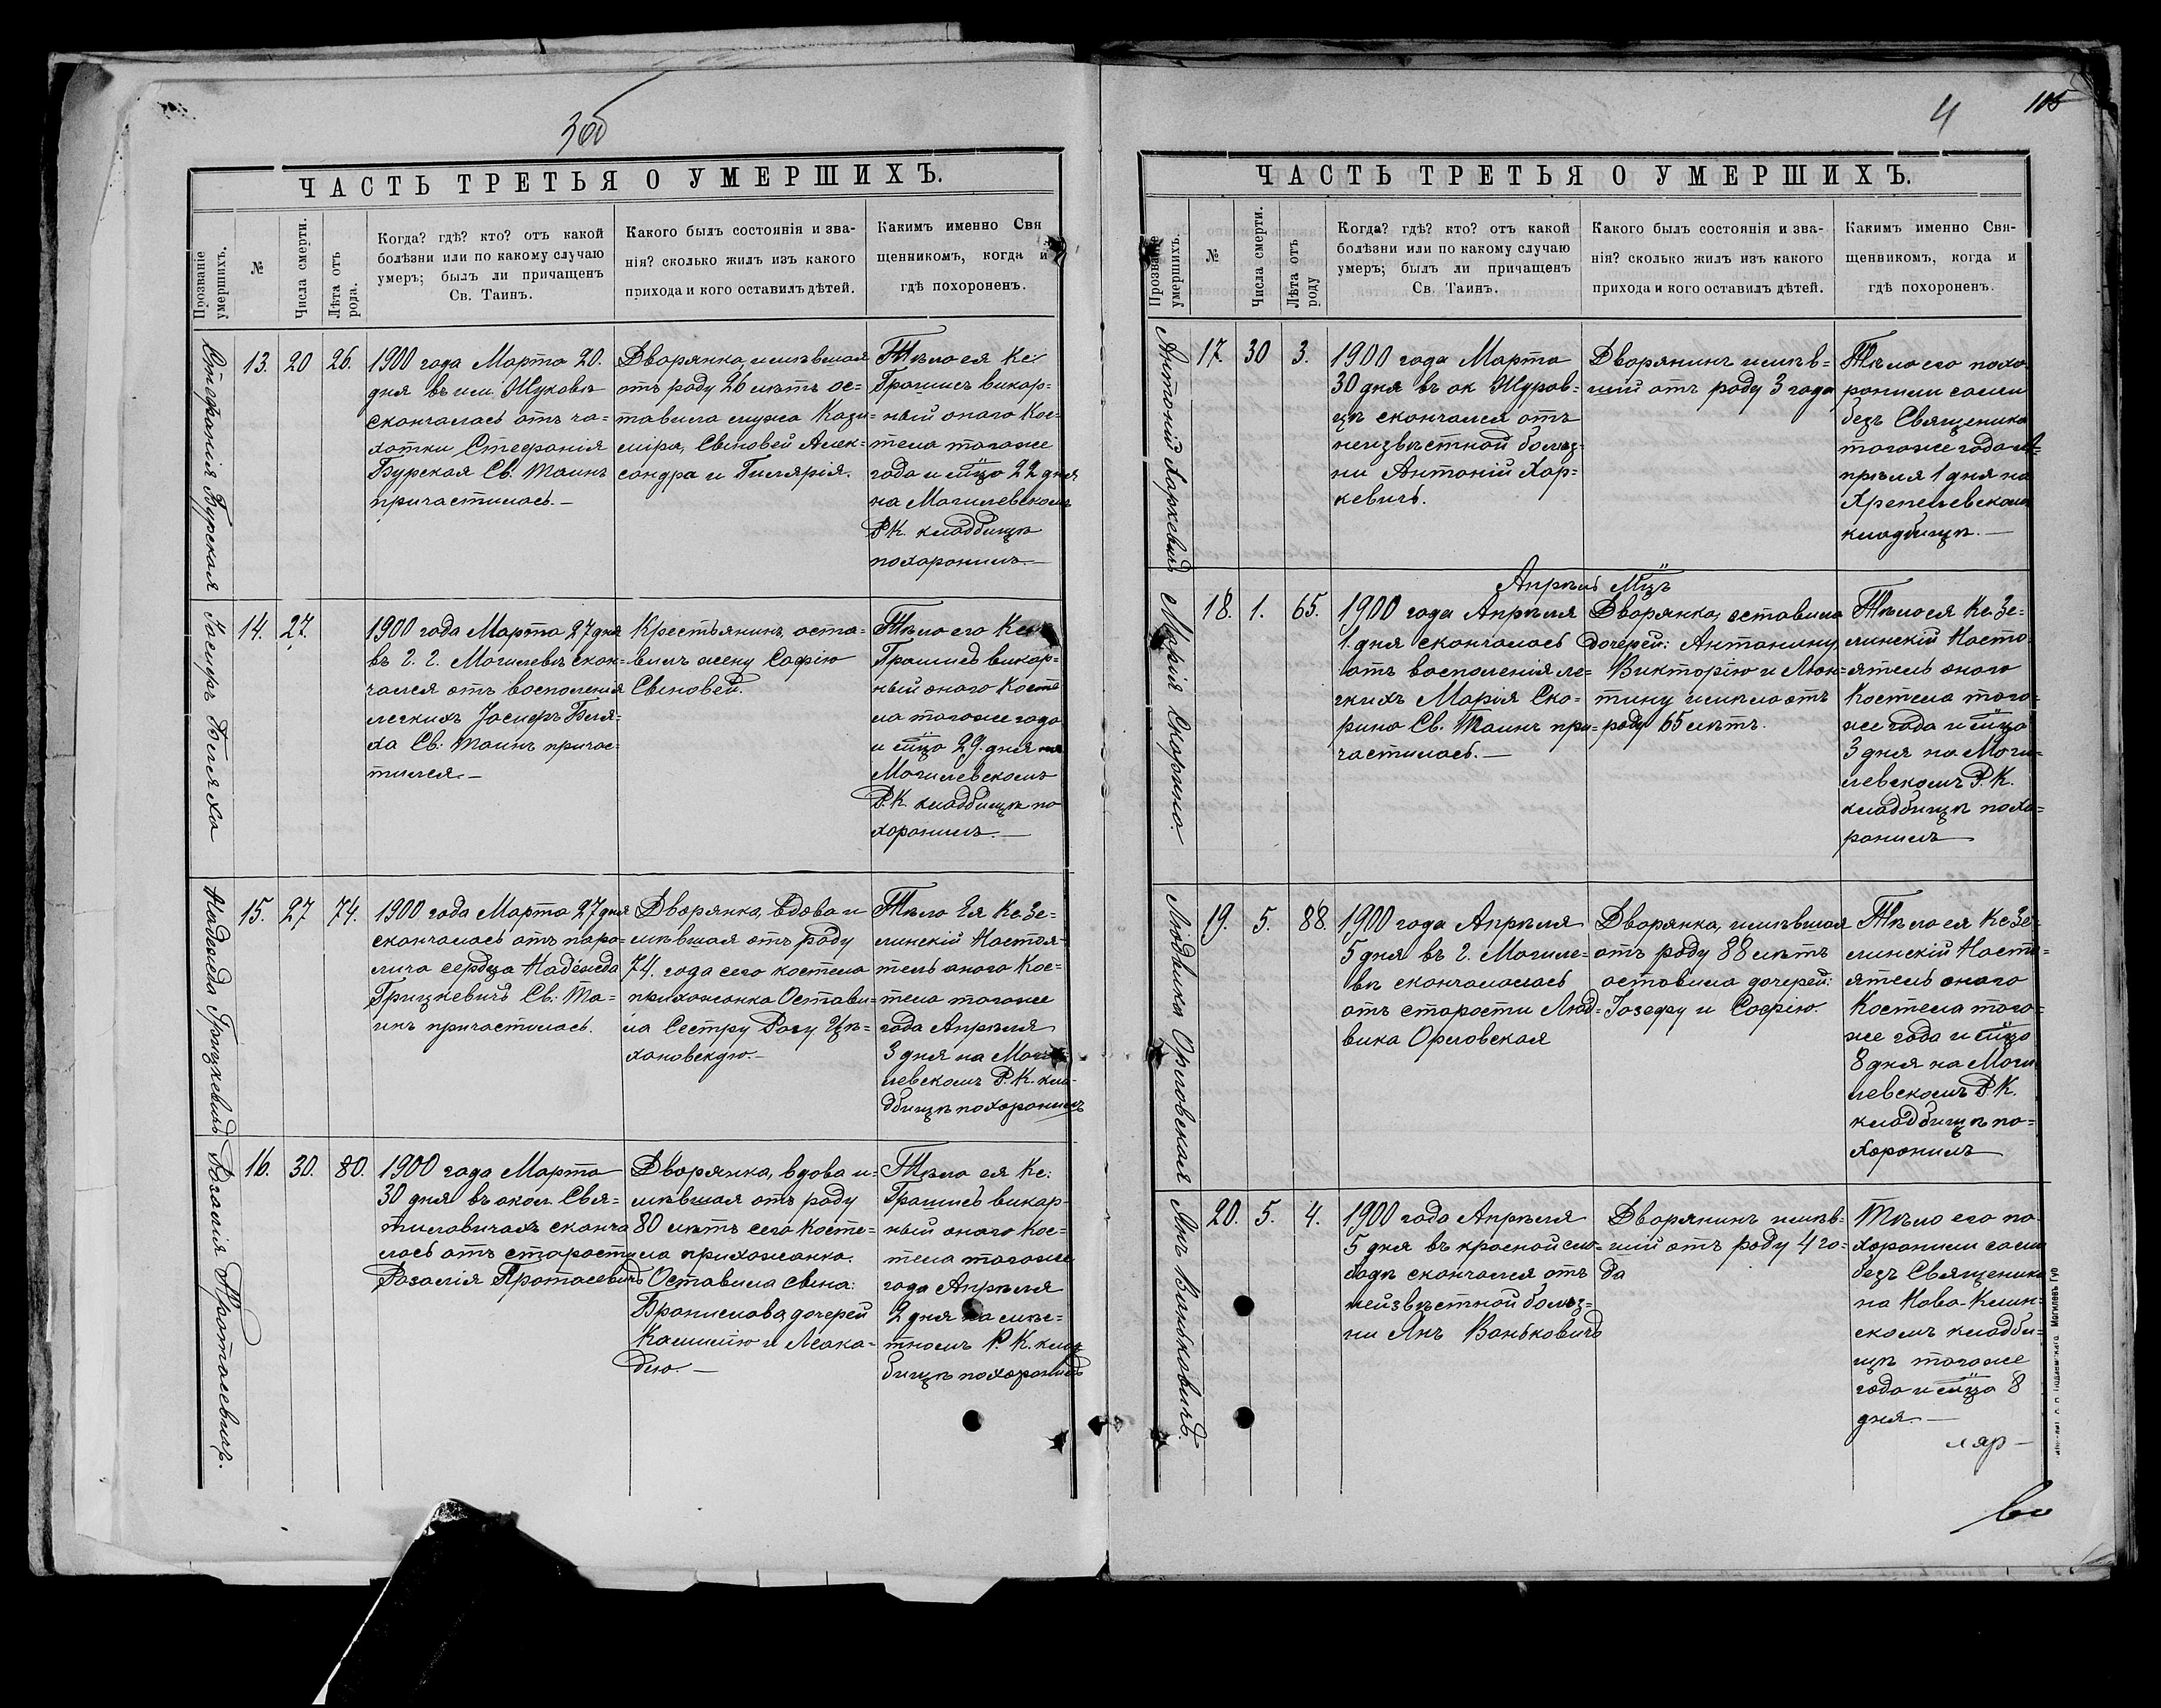 3об
ЧАСТЬ ТРЕТЬЯ О УМЕРШИХЪ.
Прозваніе умершихъ.
№
Числа смерти.
Лѣта отъ рода.
Когда? гдѣ? кто? отъ какой
болѣзни или по какому случаю
умеръ; былъ ли причащенъ
Св. Таинъ.
Какого былъ состоянія и зва-
нія? сколько жилъ изъ какого
прихода и кого оставилъ дѣтей.
Какимъ именно Свя
щенникомъ, когда и
гдѣ похороненъ.
Стефанія Бурская
13.
20
26.
1900 года Марта 20.
дня въ им. Жуковѣ
скончалась отъ ча-
хотки Стефанія
Бурская Св. Таинъ
причастилась.—
Дворянка, имѣвшая
отъ роду 26 лѣтъ ос-
тавила мужа Кази-
міра, Сыновей Алек-
сандра и Гилярія.
Тѣло ея Кс:
Грашись викар-
ный онаго Кос-
тела тогоже
года и мца 22 дня
на Могилевскомъ
Р.К. кладбищѣ
похоронилъ.—
Іосифъ Беляха
14.
27.
1900 года Марта 27 дня
въ г. г. Могилевѣ скон-
чался отъ воспаленія
легкихъ Іосифъ Беля-
ха Св: Таинъ причас-
тился.—
Крестьянинъ, оста-
вилъ жену Софію
Сыновей.
Тѣло его Кс:
Грашись викар-
ный онаго Косте
ла тогоже года
и мца 29. дня на
Могилевскомъ
Р.К. кладбищѣ по
хоронилъ.—
Надежда Грицкевичъ
15.
27
74.
1900 года Марта 27 дня
скончалась отъ пара-
лича сердца Надежда
Грицкевичъ Св: Та-
инъ причастилась.
Дворянка, вдова и
мѣвшая отъ роду
74. года сего костела
прихожанка Остави-
ла Сестру Розу Цѣ-
хановскую.—
Тѣло Ея Кс Зе-
линскій Настоя-
тель онаго Кос-
тела тогоже
года Апрѣля
3 дня на Моги-
левскомъ Р.К. кла-
дбищѣ похоронилъ
Розалія Протасевичъ.
16.
30.
80.
1900 года Марта
30 дня въ окол. Свя-
тиловичахъ сконча
лась отъ старости
Розалія Протасевичъ
Дворянка, вдова и-
мѣвшая отъ роду
80 лѣтъ сего косте-
ла прихожанка.
Оставила сына:
Бронислава, дочерей
Камилію и Леока-
дію.—
Тѣло ея Кс:
Грашись викар-
ный онаго Кос-
тела тогоже
года Апрѣля
2 дня на мѣс-
тномъ Р.К. клад
бищѣ похоронилъ
4
105
ЧАСТЬ ТРЕТЬЯ О УМЕРШИХЪ.
Прозваніе умершихъ.
№
Числа смерти.
Лѣта отъ роду
Когда? гдѣ? кто? отъ какой
болѣзни или по какому случаю
умеръ; былъ ли причащенъ
Св. Таинъ.
Какого былъ состоянія и зва-
нія? сколько жилъ изъ какого
прихода и кого оставилъ дѣтей.
Какимъ именно Свя-
щенникомъ, когда и
гдѣ похороненъ.
Антоній Харкевичъ
17.
30
3.
1900 года Марта
30 дня въ ок Журав-
цѣ скончался отъ
неизвѣстной болѣз-
ни Антоній Хар-
кевичъ.
Дворянинъ имѣв-
шій отъ роду 3 года
Тѣло его похо
ронили сами
безъ Священика
тогоже года А-
прѣля 1 дня на
Хрепелевскомъ
кладбищѣ.—
Апрѣль Мцъ
Марія Скорино.
18.
1.
65.
1900 года Апрѣля
1. дня скончалась
отъ воспаленія ле-
гкихъ Марія Ско-
рино Св. Таинъ при-
частилась.—
Дворянка, оставила
дочерей: Антонину,
Викторію и Леон-
тину имѣла отъ
роду 65 лѣтъ.
Тѣло ея Кс Зе-
линскій Насто-
ятель онаго
Костела того-
же года и мца
3 дня на Моги-
левскомъ Р.К.
кладбищѣ похо-
ронилъ
Людвика Орловская
19.
5.
88.
1900 года Апрѣля
5 дня въ г. Могиле-
вѣ скончалалась
отъ старости Люд-
вика Орловская
Дворянка, имѣвшая
отъ роду 88 лѣтъ
оставила дочерей:
Іозефу и Софію.
Тѣло ея Кс Зе-
линскій Насто-
ятель онаго
Костела того-
же года и мца
8 дня на Моги
левскомъ Р.К.
кладбищѣ по-
хоронилъ
Янъ Ваньковичъ.
20.
5.
4.
1900 года Апрѣля
5 дня въ красной сло-
бодѣ скончался отъ
неизвѣстной болѣз-
ни Янъ Ваньковичъ
Дворянинъ имѣв-
шій отъ роду 4 го-
да
Тѣло его по-
хоронили сами
безъ Священика
на Ново-Клин-
скомъ кладби-
щѣ тогоже
года и мца 8
дня.—